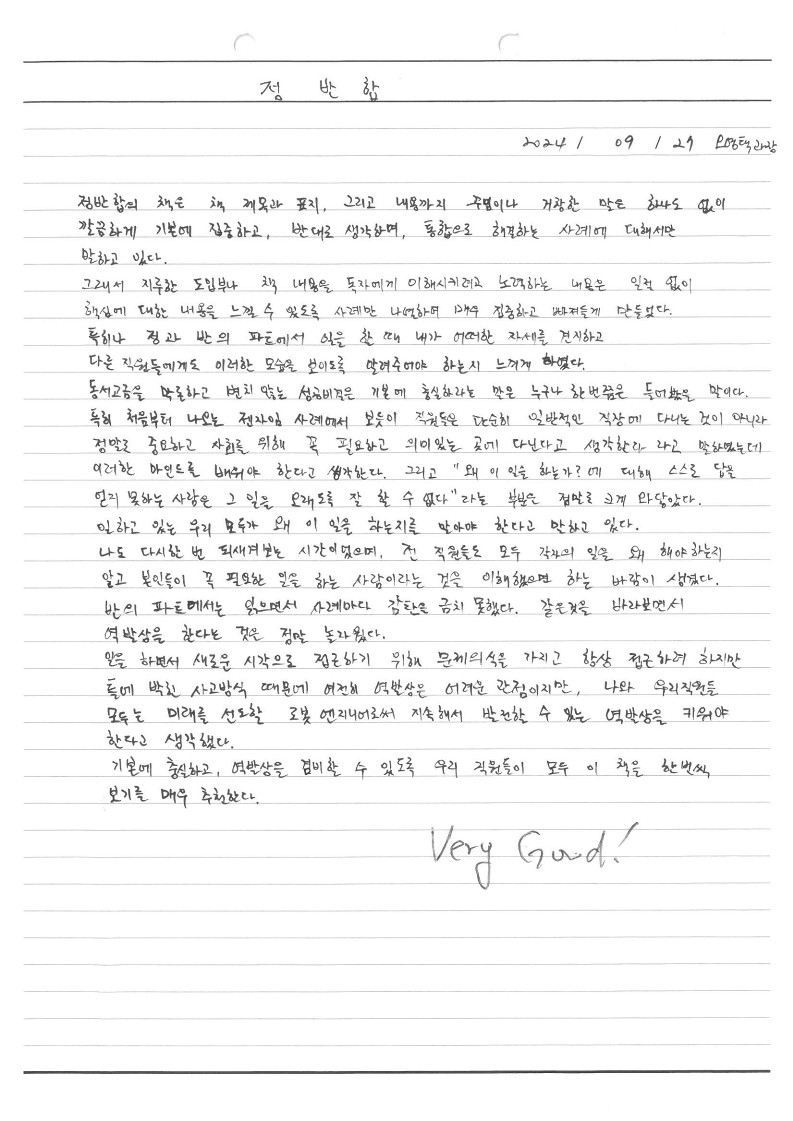 정 반 합
2024 / 09 / 27 오영택과장
정반합의 책은 책 제목과 표지, 그리고 내용까지 꾸밈이나 거창한 말은 하나도 없이
깔끔하게 기본에 집중하고, 반대로 생각하며, 통합으로 해결하는 사례에 대해서만
말하고 있다.
그래서 지루한 도입부나 책 내용을 독자에게 이해시키려고 노력하는 내용은 일절 없이
핵심에 대한 내용을 느낄 수 있도록 사례만 나열하여 매우 집중하고 빠져들게 만들었다.
특히나 정과 반의 파트에서 일을 할 때 내가 어떠한 자세를 견지하고
다른 직원들에게도 이러한 모습을 보이도록 알려주어야 하는지 느끼게 하였다.
동서고금을 막론하고 변치 않는 성공비결은 기본에 충실하라는 말은 누구나 한번쯤은 들어봤을 말이다.
특히 처음부터 나오는 전자임 사례에서 보듯이 직원들은 단순히 일반적인 직장에 다니는 것이 아니라
정말로 중요하고 사회를 위해 꼭 필요하고 의미있는 곳에 다닌다고 생각한다 라고 말하였는데
이러한 마인드를 배워야 한다고 생각한다. 그리고 "왜 이 일을 하는가? 에 대해 스스로 답을
얻지 못하는 사람은 그 일을 오래도록 잘 할 수 없다" 라는 부분은 정말로 크게 와닿았다.
일하고 있는 우리 모두가 왜 이 일을 하는지를 알아야 한다고 말하고 있다.
나도 다시한 번 되새겨보는 시간이었으며, 전 직원들도 모두 각자의 일을 왜 해야하는지
알고 본인들이 꼭 필요한 일을 하는 사람이라는 것을 이해했으면 하는 바람이 생겼다.
반의 파트에서는 읽으면서 사례마다 감탄을 금치 못했다. 같은것을 바라보면서
역발상을 한다는 것은 정말 놀라웠다.
일을 하면서 새로운 시각으로 접근하기 위해 문제의식을 가지고 항상 접근하려 하지만
틀에 박힌 사고방식 때문에 여전히 역발상은 어려운 관점이지만, 나와 우리직원들
모두는 미래를 선도할 로봇 엔지니어로써 지속해서 발전할 수 있는 역발상을 키워야
한다고 생각했다.
기본에 충실하고, 역발상을 겸비할 수 있도록 우리 직원들이 모두 이 책을 한번씩
보기를 매우 추천한다.
Very Good!